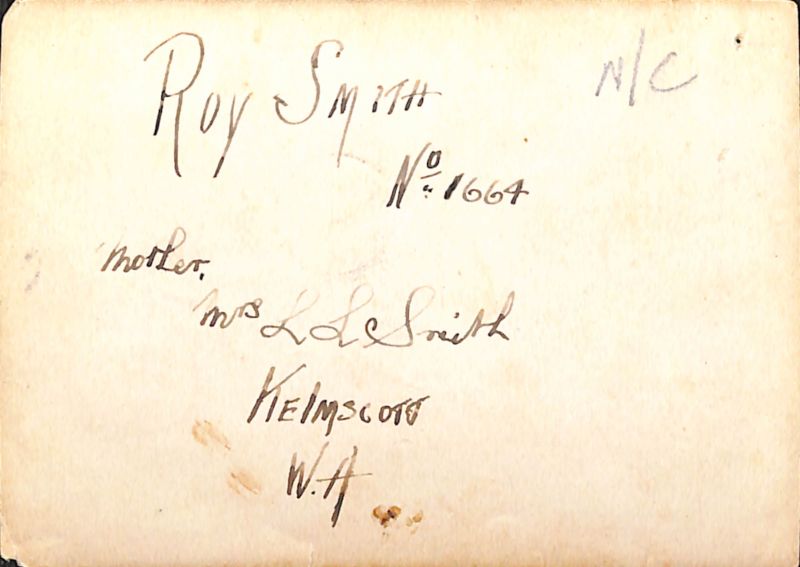 N/C
Roy Smith
No. 1664
Mother,
Mrs L L Smith
Kelmscott
W.A